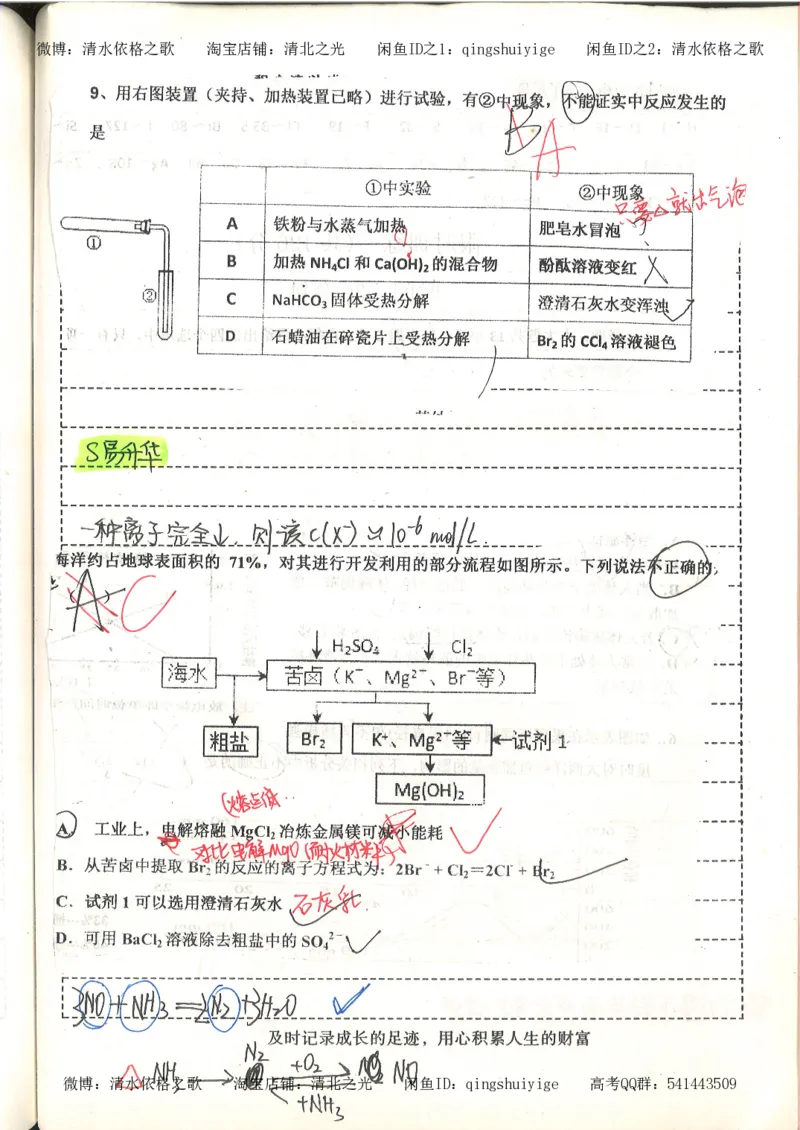 微博：清水依格之歌 淘宝店铺：清北之光 闲鱼ID之1：qingshuiyige 闲鱼ID之2：清水依格之歌
9、用右图装置（夹持、加热装置已略）进行试验，有②中现象，不能证实中反应发生的
是
B A
①中实验 ②中现象
只要△就冒气泡
A 铁粉与水蒸气加热 肥皂水冒泡
B 加热 NH₄Cl 和 Ca(OH)₂ 的混合物 酚酞溶液变红
C NaHCO₃ 固体受热分解 澄清石灰水变浑浊
D 石蜡油在碎瓷片上受热分解 Br₂ 的 CCl₄ 溶液褪色
①
②
S易升华
一种离子完全↓, 则该C(X⁻)≈10⁻⁶ mol/L.
海洋约占地球表面积的 71%，对其进行开发利用的部分流程如图所示。下列说法不正确的
A C
H₂SO₄ Cl₂
海水 苦卤（K⁺、Mg²⁺、Br⁻等）
粗盐 Br₂ K⁺、Mg²⁺等 试剂 1
Mg(OH)₂
(熔点低..
A. 工业上，电解熔融 MgCl₂ 冶炼金属镁可减小能耗
对比电解MgO(耐火材料)
B．从苦卤中提取 Br₂ 的反应的离子方程式为：2Br⁻ + Cl₂＝2Cl⁻ + Br₂
C．试剂 1 可以选用澄清石灰水 石灰乳.
D．可用 BaCl₂ 溶液除去粗盐中的 SO₄²⁻
3NO+NH₃=2N₂+3H₂O
及时记录成长的足迹，用心积累人生的财富
N₂
NH₃ +O₂ NO
微博：清水依格之歌 淘宝店铺：清北之光 闲鱼ID：qingshuiyige 高考QQ群：541443509
+NH₃